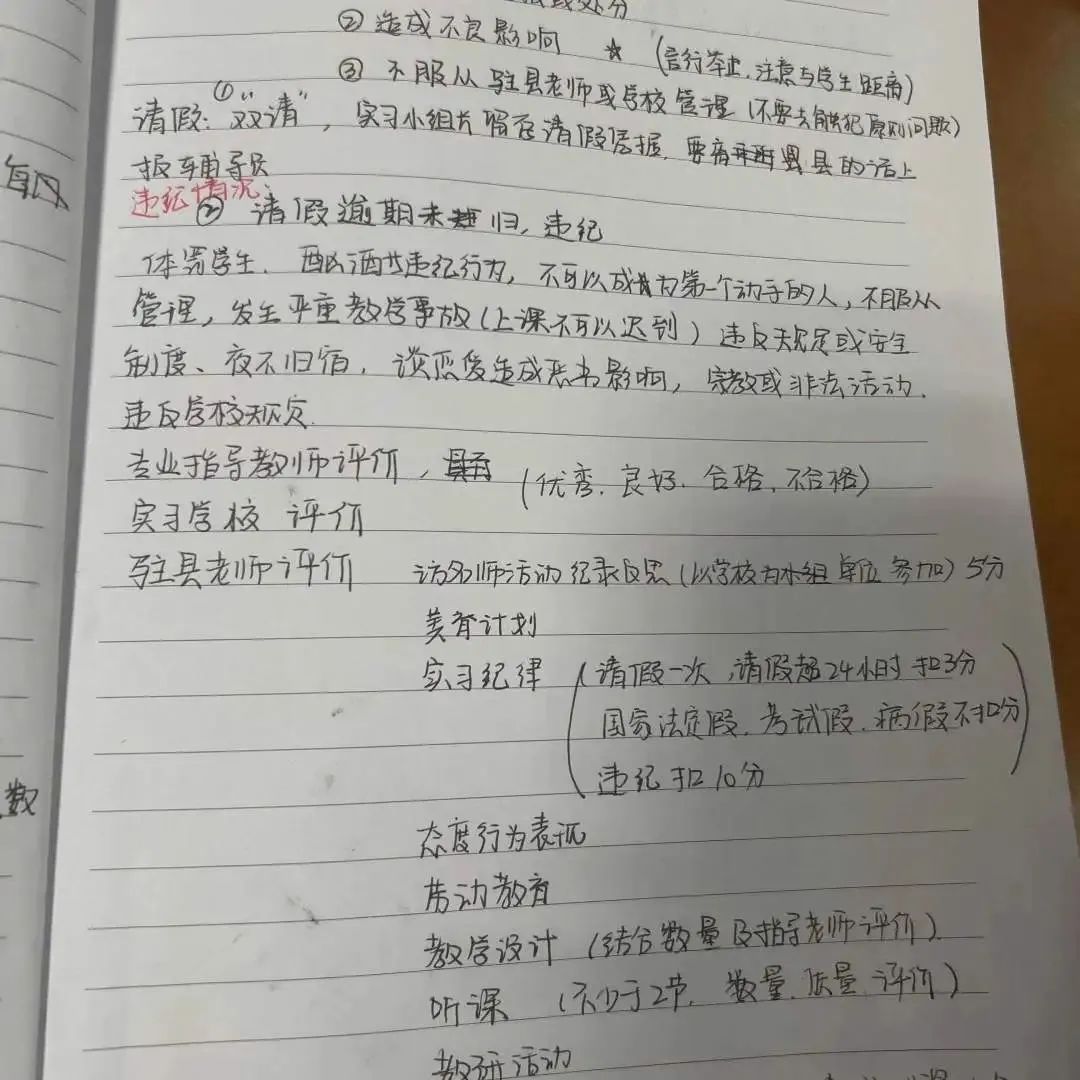 处分
② 造成不良影响 ☆ (言行举止,注意与学生距离)
③ 不服从驻县老师或学校管理 (不要去触犯原则问题)
请假:①"双请",实习小组长留存请假信据,要离开县的话上
报辅导员
违纪情况:
② 请假逾期未归,违纪
体罚学生,酗酒违纪行为,不可以成为第一个动手的人,不服从
管理,发生严重教学事故(上课不可以迟到)违反规定或安全
制度、夜不归宿,谈恋爱造成恶劣影响,宗教或非法活动.
违反学校规定.
专业指导教师评价, (优秀、良好、合格、不合格)
实习学校 评价
驻县老师评价 访名师活动 纪录反思(以学校为小组单位参加)5分
美育计划
实习纪律 (请假一次,请假超24小时扣3分
国家法定假、考试假、病假不扣分
违纪扣10分)
态度行为表现
劳动教育
教学设计 (结合数量及指导老师评价)
听课 (不少于2节,数量、质量、评价)
教研活动
每
数